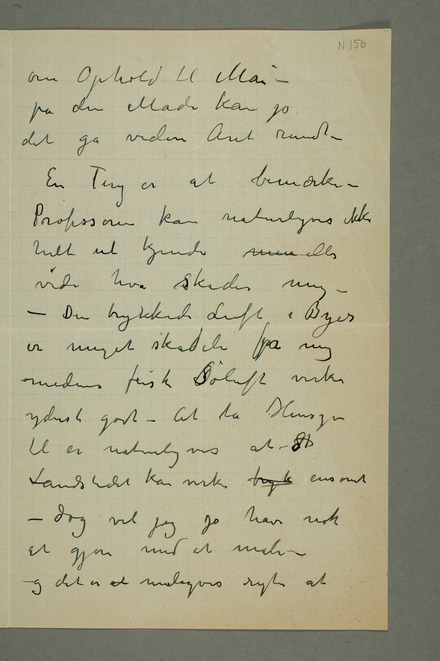 N 156
om Ophold til Mai –
på den Måde kan jo
det gå viden Året rundt –
En Ting er at bemærke –
Professoren kan naturligvis ikke
helt ud kjende eller
vide hva skader mig –
– Den trykkede Luft i Byer
er meget skadelig for mig
medens frisk Søluft virker
yderst godt – At ta Hensyn
til er naturligvis at
Landstedet kan virke tryk ensomt
– dog vil jeg jo have nok
at gjøre med at male –
og det er at